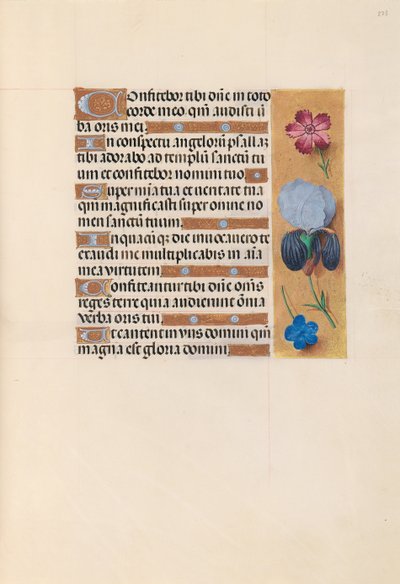 223
Confitebor tibi dñe in toto
corde meo qm̃ audisti ũ
ba oris mei.
In conspectu angelorũ psallã
tibi adorabo ad templũ sanctũ tu
um et confitebor nomini tuo
Super mĩa tua et ueritate tua
qm̃ magnificasti super omne no
men sanctũ tuum.
In quacũqʒ die inuocauero te
exaudi me multiplicabis in aĩa
mea virtutem
Confiteantur tibi dñe om̃s
reges terre quia audierunt om̃ia
verba oris tui.
Et cantent in viis domini qm̃
magna est gloria domini.